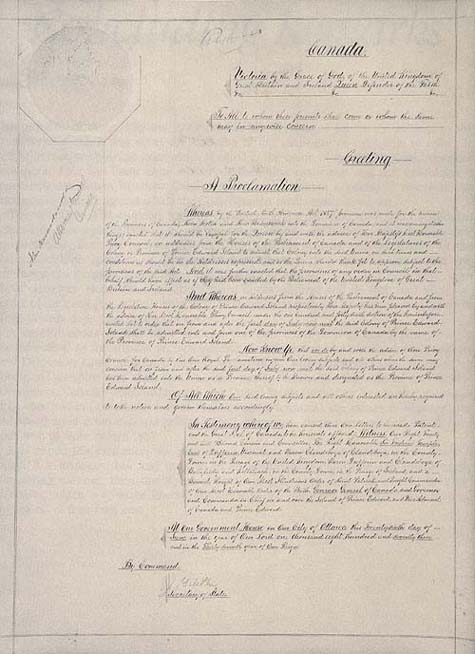 Canada
Victoria by the Grace of God, of the United Kingdom of
Great Britain and Ireland Queen Defender of the Faith
&c &c &c
To All to whom these presents shall come or whom the same
may in anywise concern
Greeting
A Proclamation
Whereas by the British North America Act 1867 provision was made for the union
of the Provinces of Canada, Nova Scotia and New Brunswick into the Dominion of Canada and it was amongst other
things enacted that it should be lawful for the Queen by and with the advice of Her Majesty's Most Honorable
Privy Council, on addresses from the Houses of the Parliament of Canada and of the Legislature of the
Colony or Province of Prince Edward Island to admit that Colony into the said Union on such terms and
conditions as should be in the addresses expressed and as the Queen should think fit to approve subject to the
provisions of the said Act. And it was further enacted that the provisions of any order in Council in that
behalf should have effect as if they had been enacted by the Parliament of the United Kingdom of Great
Britain and Ireland.
And Whereas on addresses from the Houses of the Parliament of Canada and from
the Legislative of the Colony of Prince Edward Island respectively Her Majesty has been pleased by and with
the advice of Her Most Honorable Privy Council under the one hundred and forty sixth section of the
Act to order that on from and after the first day of July now next the said Colony of Prince Edward
Island shall be admitted into and form one of the provinces of the Dominion of Canada by the name of
the Province of Prince Edward Island.
Now Know Ye that we do by and with the advice of Our Privy
Council for Canada by this Our Royal Proclamation
concern that on from and after the first day of July now next the said Colony of Prince Edward Island
has been admitted into the Union as a Province thereof to be known and designated as the Province of Prince
Edward Island.
Of All Which Our loving subjects and all others interested are hereby required
to take notice and govern themselves accordingly.
In Testimony whereof We have caused these Our Letters to be made Patent
and the Great Seal of Canada to be hereunto affixed. Witness Our Right Trusty
and Well Beloved Cousin and Councillor The Right Honorable Sir Frederic Temple
Earl of Dufferin Viscount and Baron Clandeboye of Clandeboye in the County
Down in the Peerage of the United Kingdom Baron Dufferin and Clandeboye of
Ballyleidy and Killeleagh in the County Down in the Peerage of Ireland and a
Baronet Knight of Our Most Illustrious Order of Saint Patrick and Knight Commander
of Our Most Honorable Order of the Bath Governor General of Canada and Governor
and Commander in Chief in and over the Island of Prince Edward and Vice Admiral
of Canada and Prince Edward.
At Our Government House in Our City of Ottawa this Twentieth day of
June in the year of Our Lord one thousand eight hundred and seventy three
and in the Thirty seventh year of Our Reign
By Command
Secretary of State